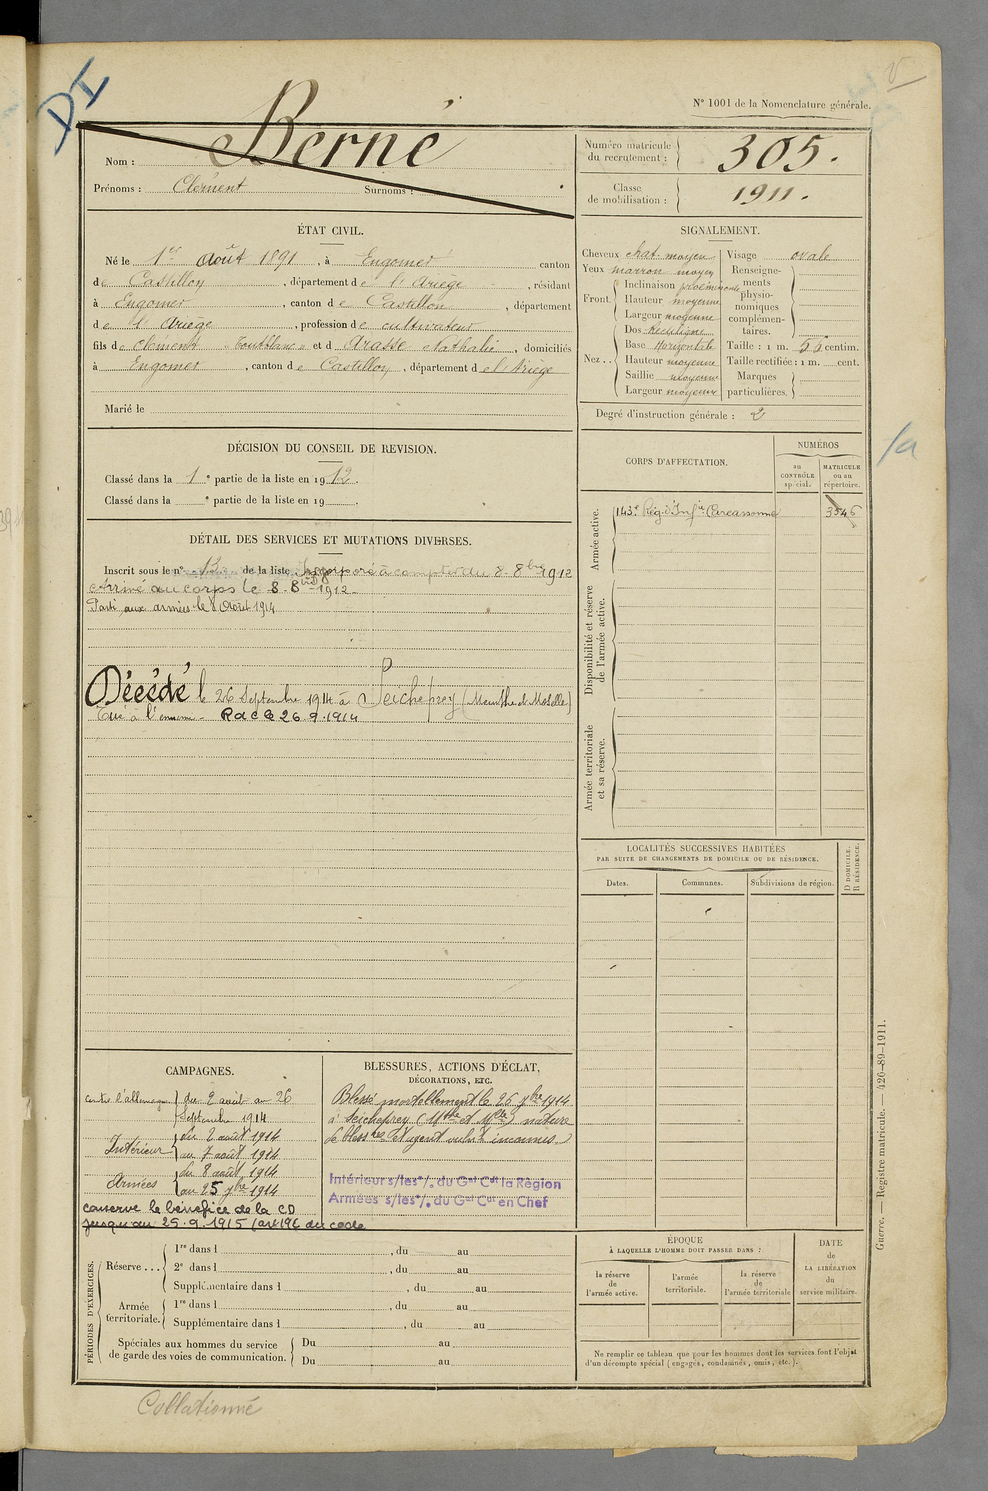 DI
N° 1001 de la Nomenclature générale.
Nom : Berné
Prénoms : Clément Surnoms :
Numéro matricule du recrutement : 305.
Classe de mobilisation : 1911.
ÉTAT CIVIL.
Né le 1er Août 1891, à Engomer canton
de Castillon, département de l'Ariège, résidant
à Engomer, canton de Castillon, département
de l'Ariège, profession de cultivateur
fils de Clément "Toutblanc" et d Arasse Nathalie, domiciliés
à Engomer, canton de Castillon, département de l'Ariège
Marié le
SIGNALEMENT.
Cheveux chat. moyen
Yeux marron moyen
Front. Inclinaison proéminente
Hauteur moyenne
Largeur moyenne
Nez.. Dos Rectiligne
Base Horizontale
Hauteur moyenne
Saillie moyenne
Largeur moyenne
Visage ovale
Renseignements physionomiques complémentaires.
Taille : 1 m. 55 centim.
Taille rectifiée : 1 m. cent.
Marques particulières.
Degré d'instruction générale : 2
1a
DÉCISION DU CONSEIL DE REVISION.
Classé dans la 1e partie de la liste en 1912.
Classé dans la e partie de la liste en 19
DÉTAIL DES SERVICES ET MUTATIONS DIVERSES.
Inscrit sous le n° 13 de la liste Incorporé à compter du 8 8bre 1912
Arrivé au corps le 8 8bre 1912
Parti aux armées le 8 Août 1914
Décédé le 26 Septembre 1914 à Seicheprey (Meurthe et Moselle)
Tué à l'ennemi - R a c le 26.9.1914
CORPS D'AFFECTATION.
NUMÉROS
au CONTRÔLE spécial.
MATRICULE ou au répertoire.
Armée active.
143e Rég. d'Infie Carcassonne 3546
Disponibilité et réserve de l'armée active.
Armée territoriale et sa réserve.
LOCALITÉS SUCCESSIVES HABITÉES
PAR SUITE DE CHANGEMENTS DE DOMICILE OU DE RÉSIDENCE.
Dates. Communes. Subdivisions de région. D DOMICILE. R RÉSIDENCE.
CAMPAGNES.
Contre l'allemagne du 2 août au 26
Septembre 1914
Intérieur du 2 août 1914
au 7 août 1914
Armées du 8 août 1914
au 25 7bre 1914
conserve le bénéfice de la CD
jusqu'au 25.9.1915 (art 196 du code
BLESSURES, ACTIONS D'ÉCLAT,
DÉCORATIONS, ETC.
Blessé mortellement le 26 7bre 1914
à Seicheprey (Mthe et Mlle) nature
de blessres et agent vulnt inconnus.
Intérieur s/les °/. du Gal Cdt la Région
Armées s/les °/. du Gal Cdt en Chef
PÉRIODES D'EXERCICES.
Réserve... 1re dans l , du au
2e dans l , du au
Supplémentaire dans l , du au
Armée territoriale. 1re dans l , du au
Supplémentaire dans l , du au
Spéciales aux hommes du service de garde des voies de communication. Du au
Du au
ÉPOQUE
À LAQUELLE L'HOMME DOIT PASSER DANS :
la réserve de l'armée active.
l'armée territoriale.
la réserve de l'armée territoriale
DATE de LA LIBÉRATION du service militaire.
Ne remplir ce tableau que pour les hommes dont les services font l'objet
d'un décompte spécial (engagés, condamnés, omis, etc.).
Guerre. — Registre matricule. — 426-89-1911.
Collationné